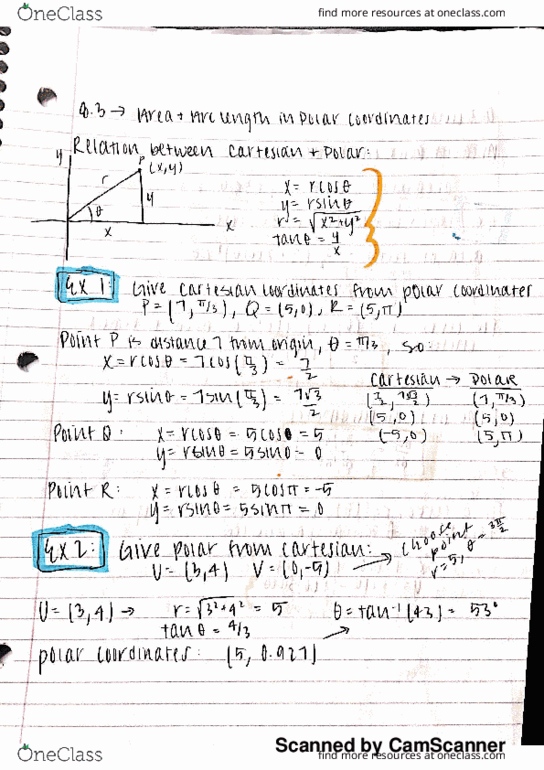 OneClass
find more resources at oneclass.com
8.3 → Area + Arc length in Polar Coordinates
Relation between Cartesian + Polar:
y
P
(x,y)
r
y
θ
x
x
x = rcosθ
y = rsinθ
r = √x²+y²
tanθ = y/x
Ex 1: Give Cartesian coordinates from polar coordinates
P = (7, π/3), Q = (5,0), R = (5,π)
Point P is distance 7 from origin, θ = π/3, so:
x = rcosθ = 7cos(π/3) = 7/2
y = rsinθ = 7sin(π/3) = 7√3/2
Cartesian → Polar
(7/2, 7√3/2) (7, π/3)
(5,0) (5,0)
(-5,0) (5,π)
Point Q: x = rcosθ = 5cos0 = 5
y = rsinθ = 5sin0 = 0
Point R: x = rcosθ = 5cosπ = -5
y = rsinθ = 5sinπ = 0
Ex 2: Give polar from Cartesian:
U = (3,4) V = (0,-5)
choose
point
r=5, θ = 3π/2
U = (3,4) → r = √3²+4² = 5 θ = tan⁻¹(43) = 53°
tanθ = 4/3
polar coordinates: (5, 0.927)
Scanned by CamScanner
OneClass
find more resources at oneclass.com